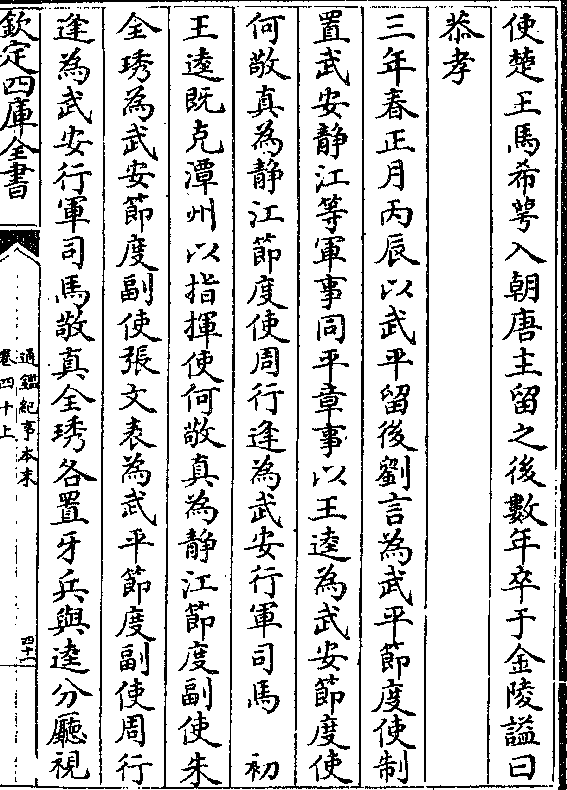 使楚王馬希萼入朝唐主留之後數年卒于金陵謚曰
恭孝
三年春正月丙辰以武平留後劉言為武平節度使制
置武安静江等軍事同平章事以王逵為武安節度使
何敬真為静江節度使周行逢為武安行軍司馬　初
王逵既克潭州以指揮使何敬真為静江節度副使朱
全琇為武安節度副使張文表為武平節度副使周行
逢為武安行軍司馬敬真全琇各置牙兵與逵分廳視
欽定四庫全書
通鑑紀事本末
卷四十上
四十一